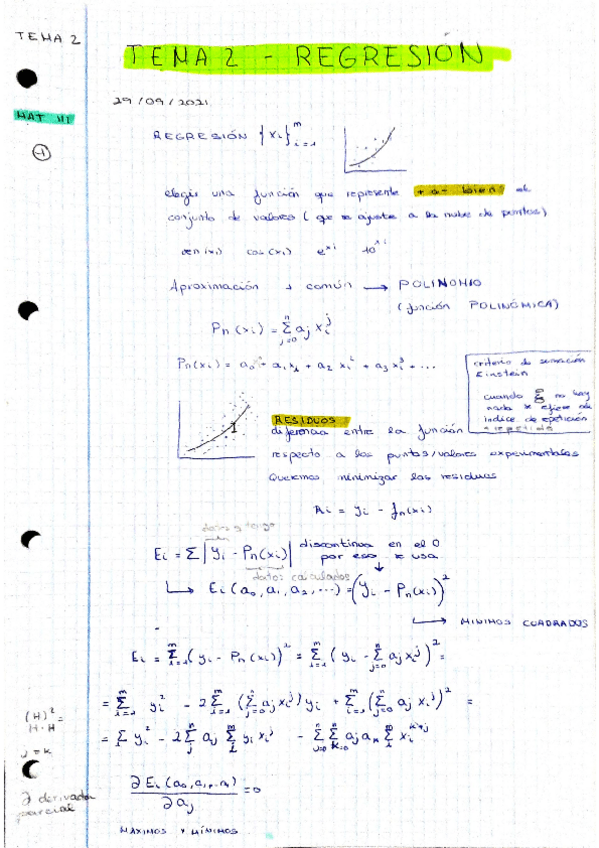 TEMA 2
TEMA 2 - REGRESIÓN
MAT III
-1
29/09/2021
REGRESIÓN {xi}ᵐᵢ₌₁
elegir una función que represente + o - bien el
conjunto de valores (que se ajuste a la nube de puntos)
sen(xi) cos(xi) e^xi 10^xi
Aproximación + común → POLINOMIO
(función POLINÓMICA)
Pn(xi) = Σⁿⱼ₌₀ aj xi^j
Pn(xi) = a0 + a1 xi + a2 xi² + a3 xi³ + ...
criterio de sumación
Einstein
cuando Σ no hay
nada se refiere al
índice de repetición
repetido
RESIDUOS
diferencia entre la función
respecto a los puntos/valores experimentales
Queremos minimizar los residuos
Ri = yi - fn(xi)
Ei = Σ|yi - Pn(xi)| discontinua en el 0
por eso se usa
datos calculados
↳ Ei(a0, a1, a2, ...) = (yi - Pn(xi))²
→ MINIMOS CUADRADOS
Ei = Σᵐᵢ₌₁ (yi - Pn(xi))² = Σᵐᵢ₌₁ (yi - Σⁿⱼ₌₀ aj xi^j)² =
= Σᵐᵢ₌₁ yi² - 2 Σᵐᵢ₌₁ (Σⁿⱼ₌₀ aj xi^j) yi + Σᵐᵢ₌₁ (Σⁿⱼ₌₀ aj xi^j)² =
(H)² =
H·H
= Σ yi² - 2 Σⁿⱼ aj Σᵐᵢ yi xi^j - Σⁿⱼ₌₀ Σⁿₖ₌₀ aj ak Σᵐᵢ xi^k+j
j = k
∂ derivada
parcial
∂Ei(a0, a1, ... an) / ∂aj = 0
MAXIMOS Y MÍNIMOS